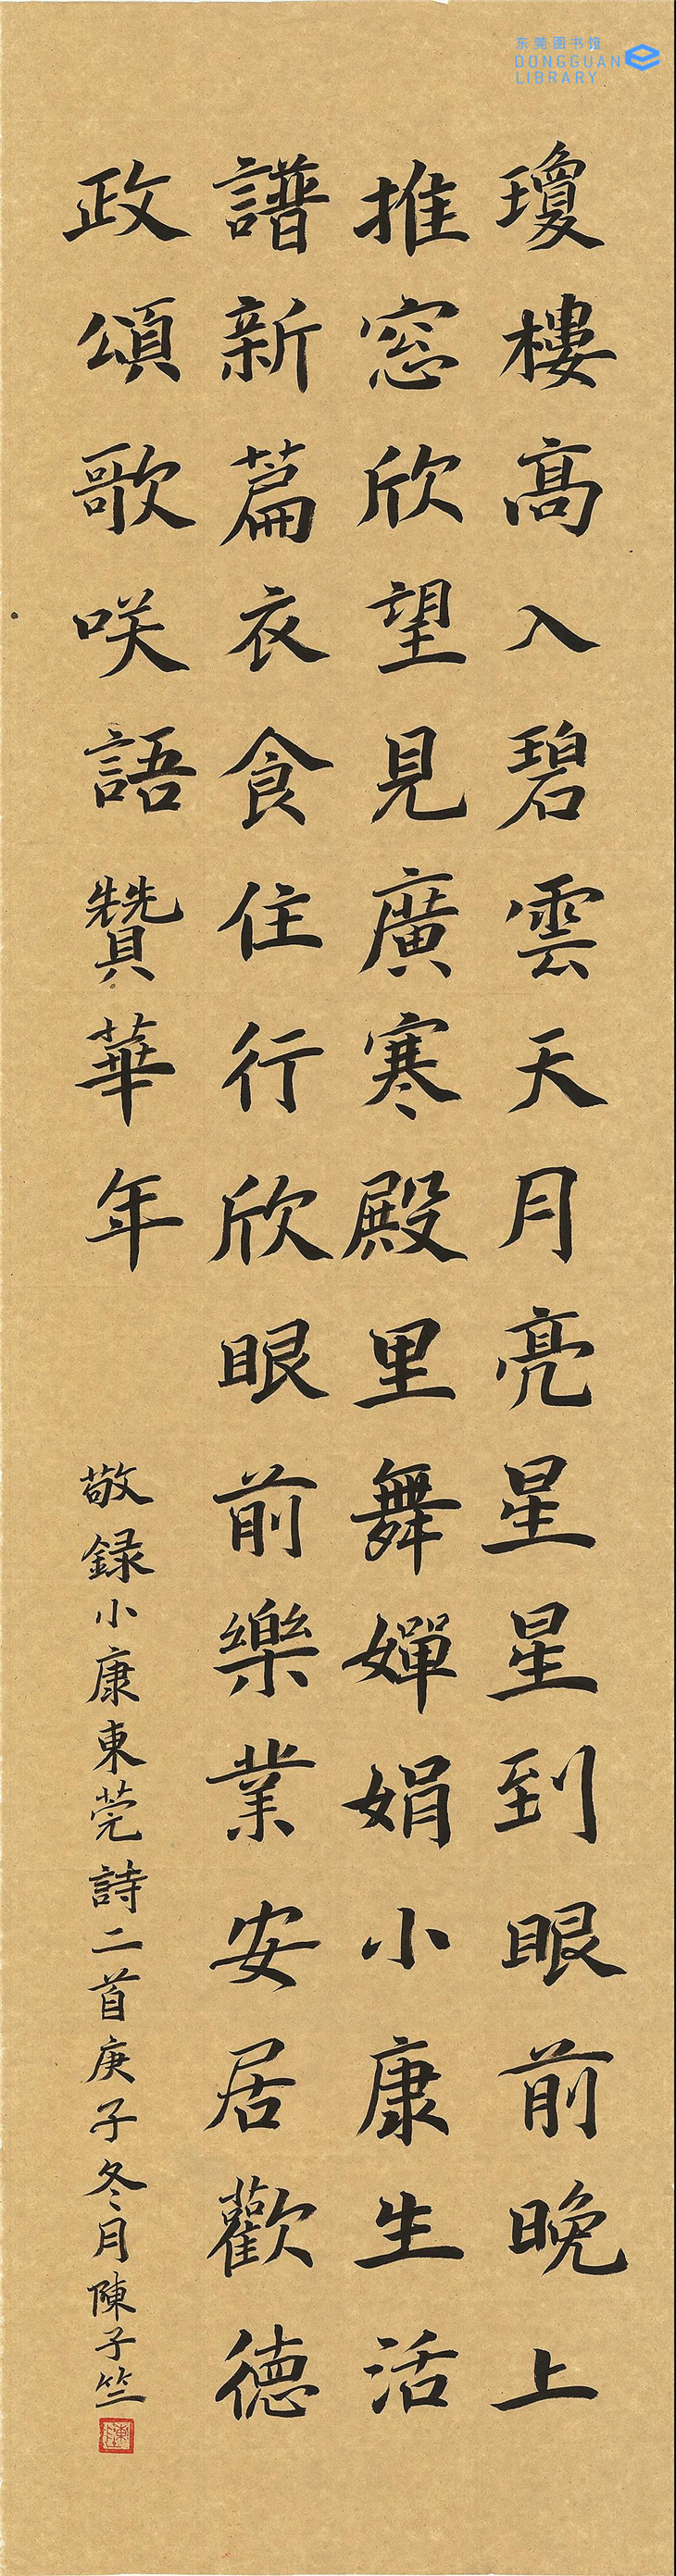 东莞图书馆
DONGGUAN
LIBRARY
瓊樓高入碧雲天月亮星星到眼前晚上
推窓欣望見廣寒殿里舞嬋娟小康生活
譜新篇衣食住行欣眼前樂業安居歡德
政頌歌咲語贊華年
敬録小康東莞詩二首庚子冬月陳子竺